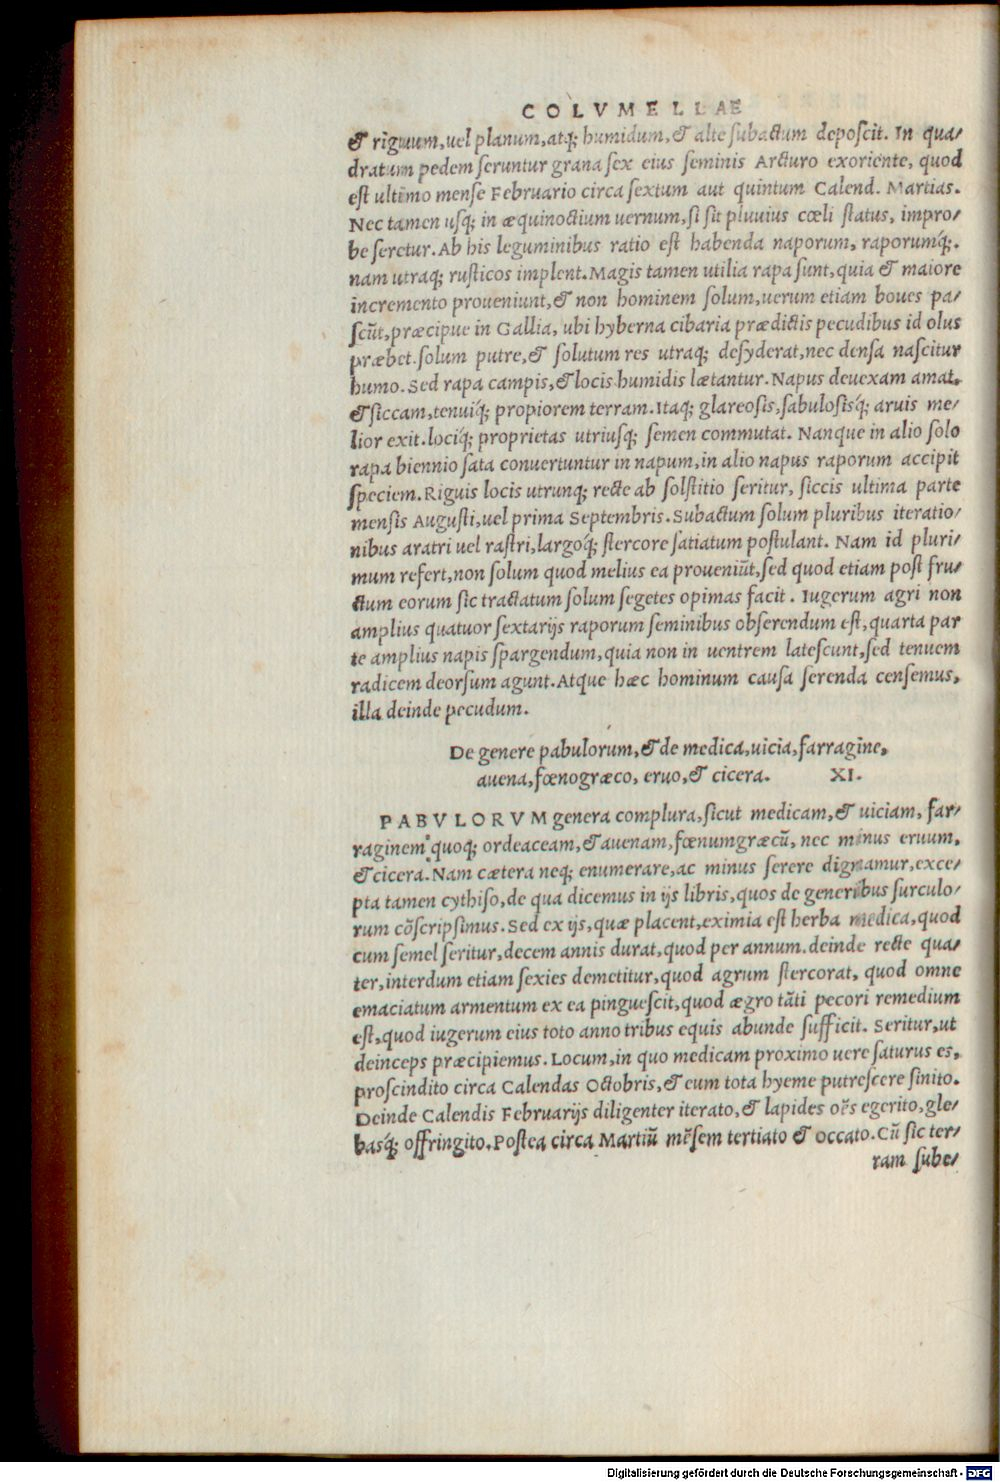 COLVMELLAE
& riguum, uel planum, atq; humidum, & alte subactum deposcit. In qua/
dratum pedem seruntur grana sex eius seminis Arcturo exoriente, quod
est ultimo mense Februario circa sextum aut quintum Calend. Martias.
Nec tamen usq; in æquinoctium uernum, si sit pluuius cœli status, impro/
be seretur. Ab his leguminibus ratio est habenda naporum, raporumq́;.
nam utraq; rusticos implent. Magis tamen utilia rapa sunt, quia & maiore
incremento proueniunt, & non hominem solum, uerum etiam boues pa/
scūt, præcipue in Gallia, ubi hyberna cibaria prædictis pecudibus id olus
præbet. solum putre, & solutum res utraq; desyderat, nec densa nascitur
humo. Sed rapa campis, & locis humidis lætantur. Napus deuexam amat,
& siccam, tenuiq́; propiorem terram. Itaq; glareosis, sabulosisq́; aruis me/
lior exit. lociq́; proprietas utriusq; semen commutat. Nanque in alio solo
rapa biennio sata conuertuntur in napum, in alio napus raporum accipit
speciem. Riguis locis utrunq; recte ab solstitio seritur, siccis ultima parte
mensis Augusti, uel prima Septembris. Subactum solum pluribus iteratio/
nibus aratri uel rastri, largoq́; stercore satiatum postulant. Nam id pluri/
mum refert, non solum quod melius ea proueniūt, sed quod etiam post fru/
ctum eorum sic tractatum solum segetes opimas facit. Iugerum agri non
amplius quatuor sextarijs raporum seminibus obserendum est, quarta par
te amplius napis spargendum, quia non in uentrem latescunt, sed tenuem
radicem deorsum agunt. Atque hæc hominum causa serenda censemus,
illa deinde pecudum.
De genere pabulorum, & de medica, uicia, farragine,
auena, fœnogræco, eruo, & cicera. XI.
PABVLORVM genera complura, sicut medicam, & uiciam, far/
raginem quoq; ordeaceam, & auenam, fœnumgræcū, nec minus eruum,
& cicera. Nam cætera neq; enumerare, ac minus serere dignamur, exce/
pta tamen cythiso, de qua dicemus in ijs libris, quos de generibus surculo/
rum cōscripsimus. Sed ex ijs, quæ placent, eximia est herba medica, quod
cum semel seritur, decem annis durat, quod per annum. deinde recte qua/
ter, interdum etiam sexies demetitur, quod agrum stercorat, quod omne
emaciatum armentum ex ea pinguescit, quod ægro tāti pecori remedium
est, quod iugerum eius toto anno tribus equis abunde sufficit. Seritur, ut
deinceps præcipiemus. Locum, in quo medicam proximo uere saturus es,
proscindito circa Calendas Octobris, & eum tota hyeme putrescere sinito.
Deinde Calendis Februarijs diligenter iterato, & lapides oēs egerito, gle/
basq́; offringito. Postea circa Martiū mēsem tertiato & occato. Cū sic ter/
ram sube/
Digitalisierung gefördert durch die Deutsche Forschungsgemeinschaft - DFG